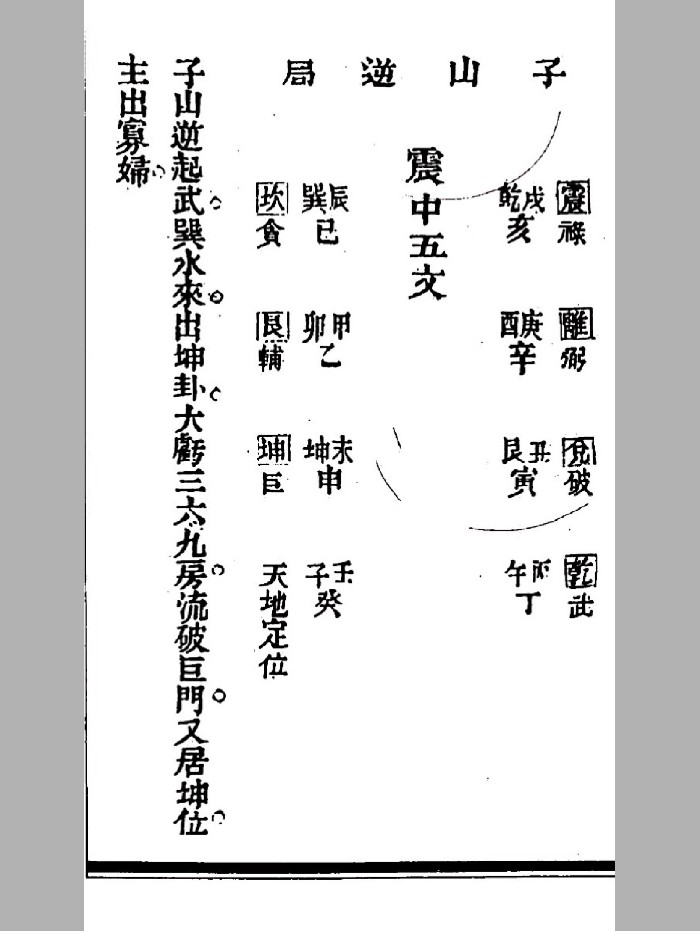 子山逆局
震祿 離弼 兌破 乾武
戌乾亥 庚酉辛 丑艮寅 丙午丁
震中五文
辰巽巳 甲卯乙 未坤申 壬子癸
坎貪 艮輔 坤巨 天地定位
子山逆起武。巽水來。出坤卦。大虧三六九房。流破巨門。又居坤位。
主出寡婦。